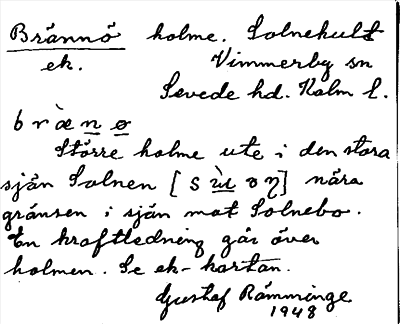 Brännö holme. Solnehult
ek. Vimmerby sn
Sevede hd. Kalm l.
b r æ̀ n ø
Större holme ute i den stora
sjön Solnen [ s ù ɷ ŋ] nära
gränsen i sjön mot Solnebo.
En kraftledning går över
holmen. Se ek-kartan.
Gustaf Rämminge
1948